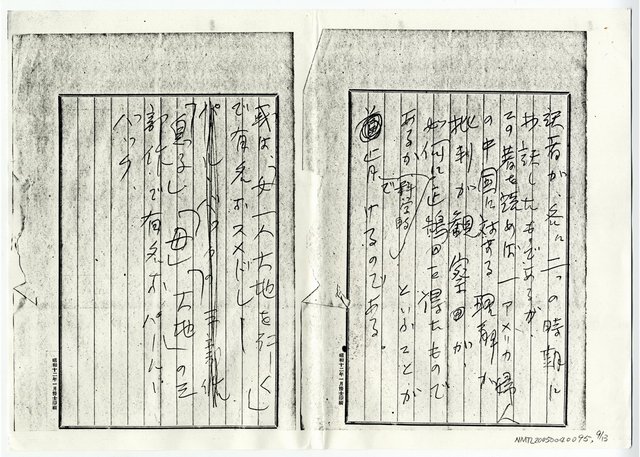 訳者が、各に二つの時期に
お話したものであるが、
この著を読めば一アメリカ婦人
の中国に対する理解が
批判が観察眼が、
如何に正鵠を得たもので
あるか
科学的で
といふことが
首肯けるのである。
或は、「女一人大地を行く」
で有名なスメドレー
パール・バックの三部作
「息子」「母」「大地」の三
部作で有名なパール・
バック、
昭和十二年一月
昭和十二年一月
NMTL20050040095, 9/13